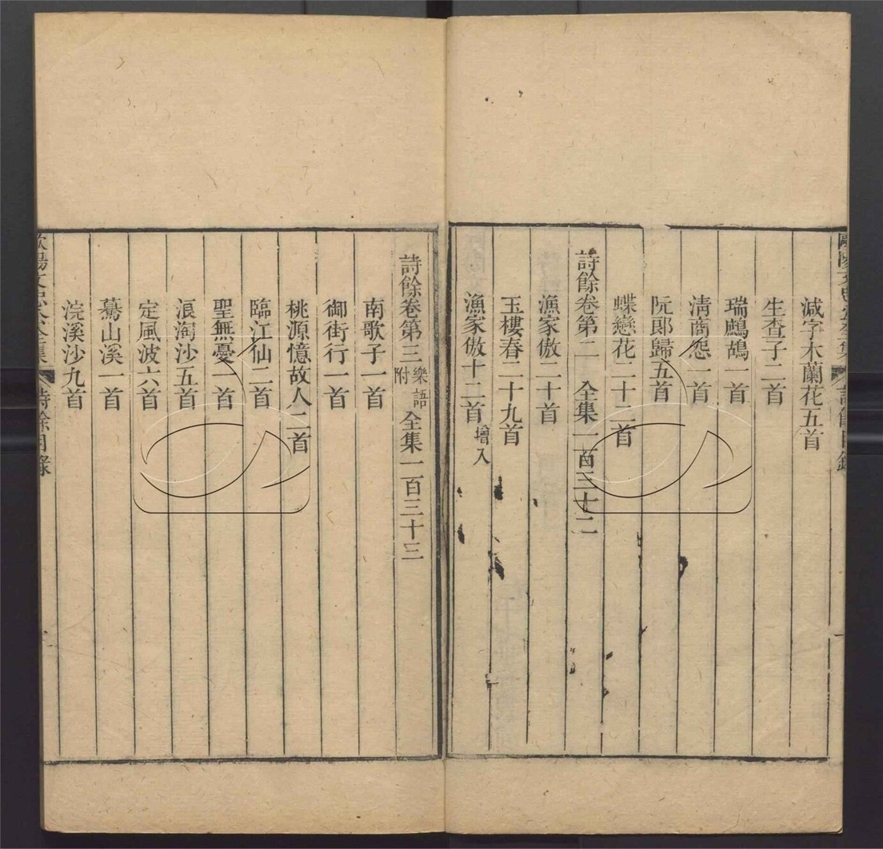 減字木蘭花五首
生查子二首
瑞鷓鴣一首
清商怨一首
阮郎歸五首
蝶戀花二十二首
詩餘卷第二　全集一百三十二
漁家傲二十首
玉樓春二十九首
漁家傲十二首增入
詩餘卷第三樂語附　全集一百三十三
南歌子一首
御街行一首
桃源憶故人二首
臨江仙二首
聖無憂一首
浪淘沙五首
定風波六首
驀山溪一首
浣溪沙九首
詩餘目錄